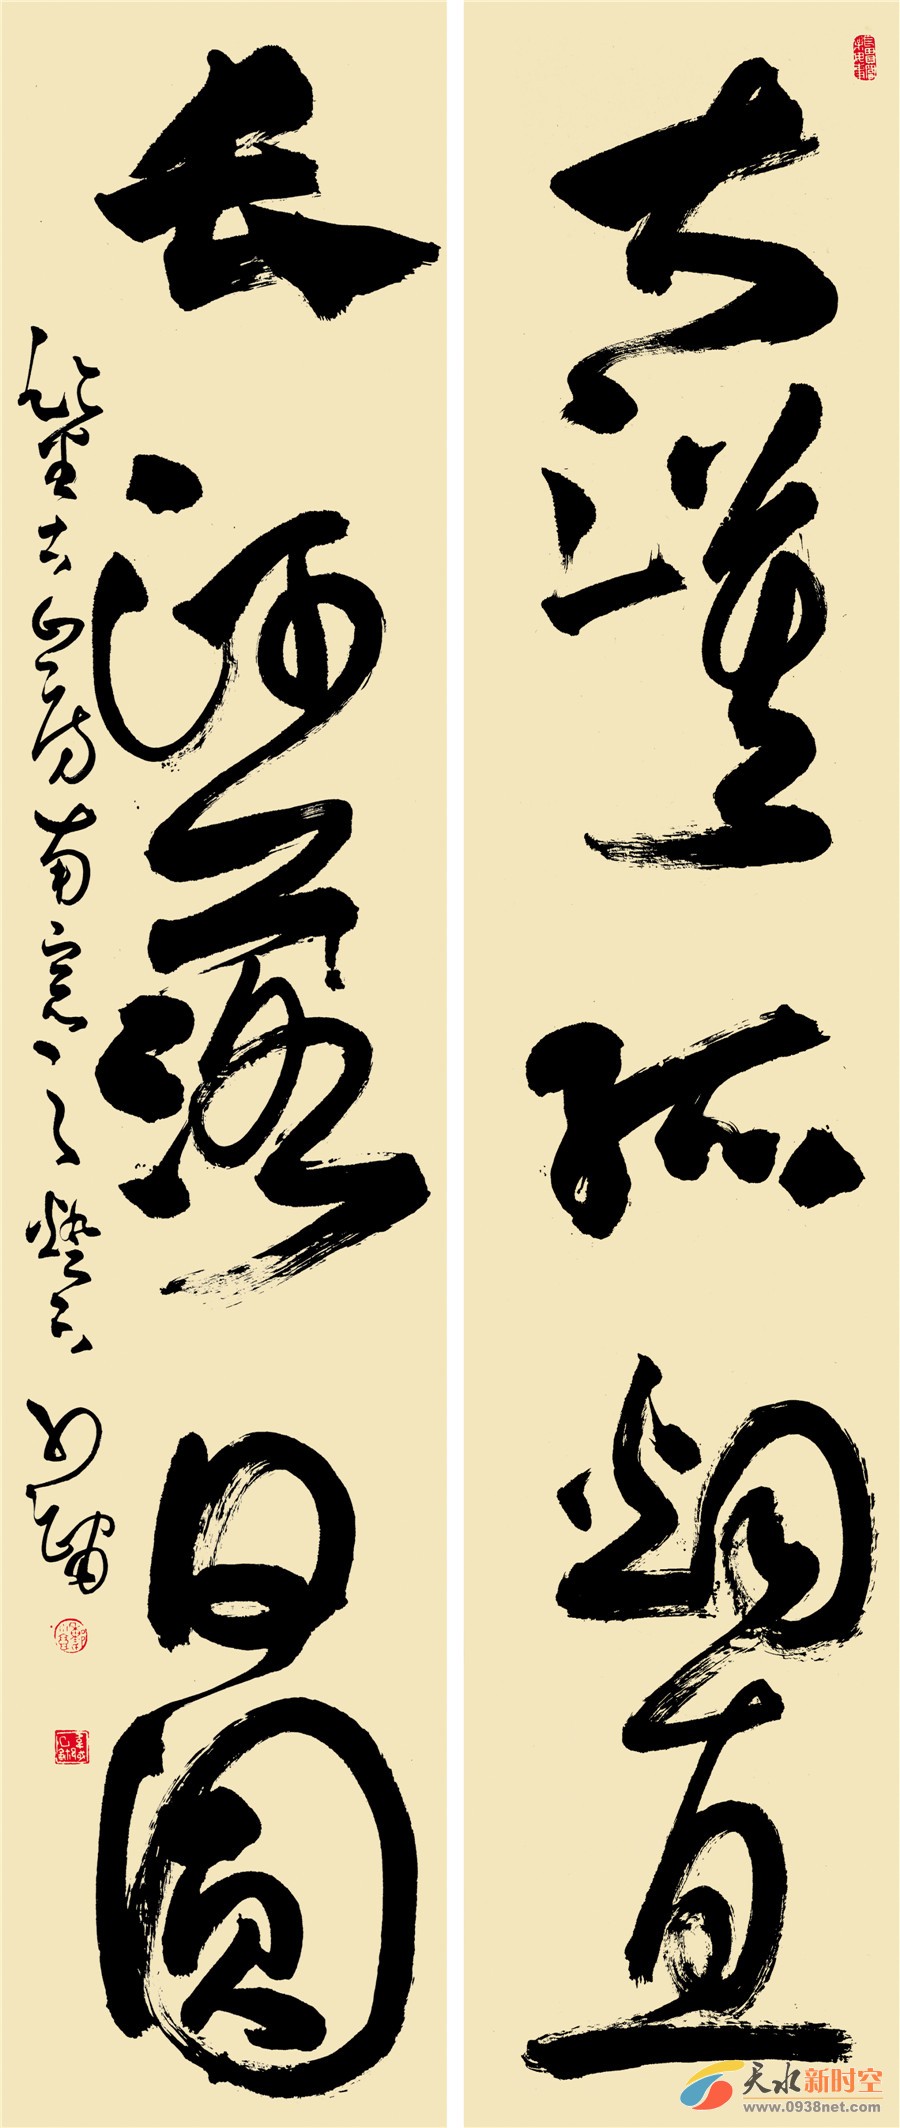 大漠孤烟直
长河落日圆
山房南窗
天水新时空
www.0938net.com